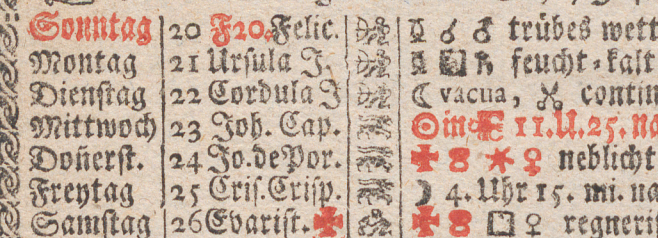 Sonntag 20 F20. Felic. ☿ ☌ ♂ trübes wett
Montag 21 Ursula J. ☿ □ ♄ feucht-kalt
Dienstag 22 Cordula J ☾ vacua, contin
Mittwoch 23 Joh. Cap. ☉ in 11.U.25.
Doñerst. 24 Jo.dePor. ✠ 8 ✶ ♀ neblicht
Freytag 25 Cris.Crisp. ☽ 4.Uhr 15. mi. na
Samstag 26 Evarist. ✠ ✠ 8 □ ♀ regneri